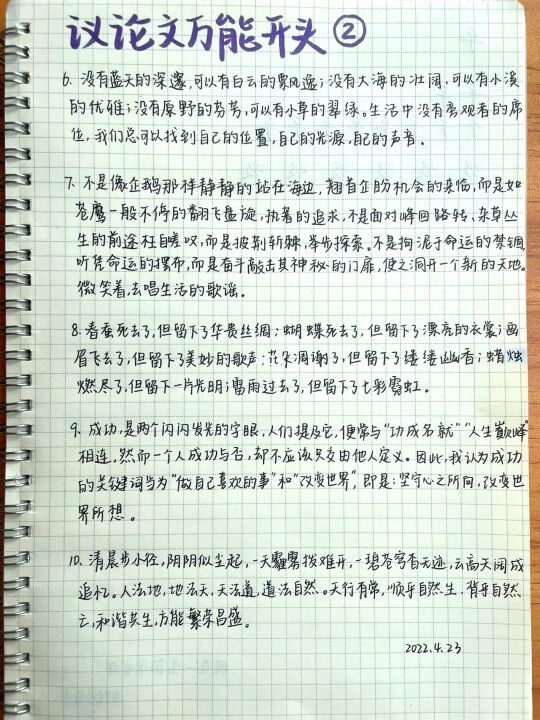 议论文万能开头②
6. 没有蓝天的深邃,可以有白云的飘逸;没有大海的壮阔,可以有小溪
的优雅;没有原野的芬芳,可以有小草的翠绿。生活中没有旁观者的席
位,我们总可以找到自己的位置,自己的光源,自己的声音。
7. 不是像企鹅那样静静的站在海边,翘首企盼机会的来临,而是如
苍鹰一般不停的翻飞盘旋,执着的追求,不是面对峰回路转、杂草丛
生的前途枉自嗟叹,而是披荆斩棘,举步探索。不是拘泥于命运的禁锢,
听凭命运的摆布,而是奋斗敲击其神秘的门扉,使之洞开一个新的天地。
微笑着,去唱生活的歌谣。
8. 春蚕死去了,但留下了华贵丝绸;蝴蝶死去了,但留下了漂亮的衣裳;画
眉飞去了,但留下了美妙的歌声;花朵凋谢了,但留下了缕缕幽香;蜡烛
燃尽了,但留下一片光明;雷雨过去了,但留下了七彩霓虹。
9. 成功,是两个闪闪发光的字眼,人们提及它,便常与“功成名就”“人生巅峰”
相连,然而一个人成功与否,却不应该只交由他人定义。因此,我认为成功
的关键词当为“做自己喜欢的事”和“改变世界”,即是:坚守心之所向,改变世
界所想。
10. 清晨步小径,阴阴似尘起,一天霾雾拨难开,一碧苍穹杳无迹,云高天阔成
追忆。人法地,地法天,天法道,道法自然。天行有常,顺乎自然生,背乎自然
亡,和谐共生,方能繁荣昌盛。
2022.4.23